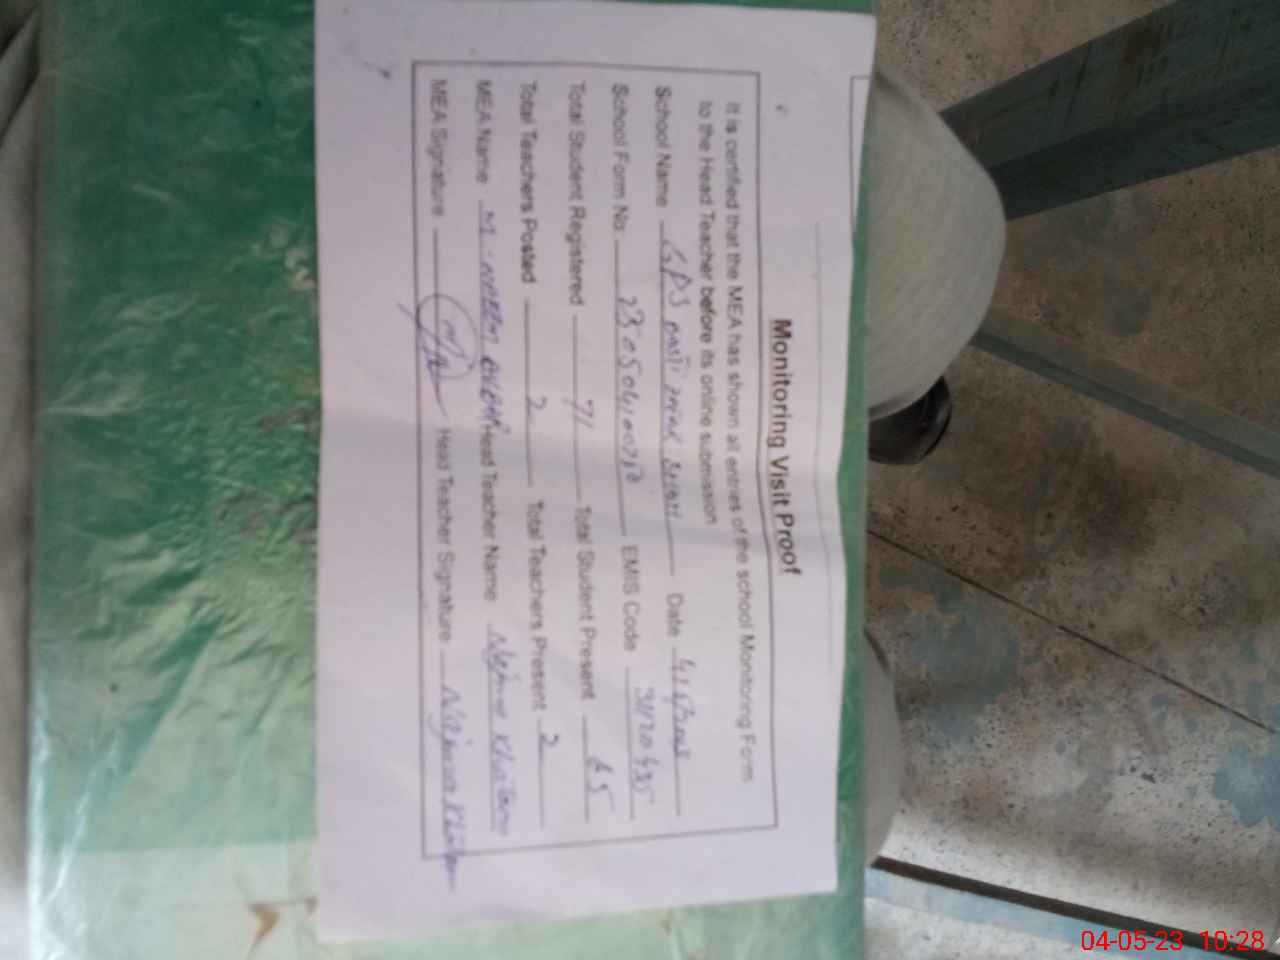 Monitoring Visit Proof
It is certified that the MEA has shown all entries of the school Monitoring Form
to the Head Teacher before its online submission
School Name GPS Date
School Form No EMIS Code
Total Student Registered 71 Total Student Present 65
Total Teachers Posted 2 Total Teachers Present 2
MEA Name M. Head Teacher Name Najma Khatoon
MEA Signature Head Teacher Signature Najma
04-05-23 10:28